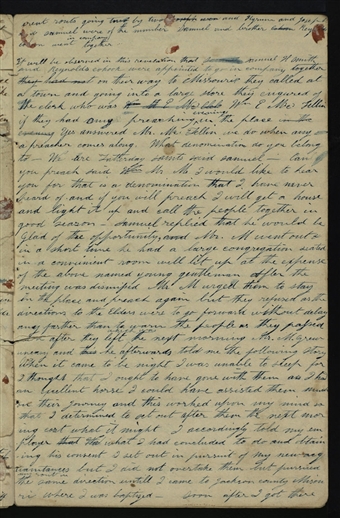 went
route going two by two
and Hyrum and Joseph
and samuel were of the number Samuel and brother
in company
went together
It will be observed in this connection that samuel H Smith
and Reynolds cahoon were appointed to go in company together
on their way to Missouri they called at
a town and going into a large store they enquired of
the clerk who was Wm E. Mc Lellin
if they had any preaching in the place
evening
Yes answered Mr. Mc Lellin we do when any
preacher comes along. What denomination do you belong
to — We are Latter day saints said samuel — Can
you preach said Mr. M I would like to hear
you for that is a denomination that I have never
heard of and if you will preach I will get a house
and light it up and call the people together in
good season — samuel replied that he would be
glad of the opportunity and Mr. M went out &
in a short time he had a large congregation seated
in a convenient room well lit up at the expense
of the above named young gentleman after the
meeting was dismissed Mr. M urged them to stay
in the place and preach again but they refused as the
directions to the Elders were to go forward without delay
any farther than to warn the people as they passed
after they left the next morning Mr. M grew
uneasy and he afterwards told me the following story
when it came to be night I was unable to sleep for
I thought that I ought to have gone with them as I had
an excellent horse I could have assisted them much
on their journey and this worked upon my mind so
that I determined to set out after them the next mor
ning cost what it might I accordingly told my em
ployer what I had concluded to do and obtain
ing his consent I set out in pursuit of my new acq
uaintances but I did not overtake them but pursued
the same direction untill I came to Jackson county Missou
ri where I was baptized — Soon after I got there